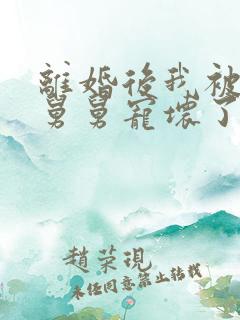 離婚後我被
舅舅寵壞了
趙榮現
未经同意禁止转载